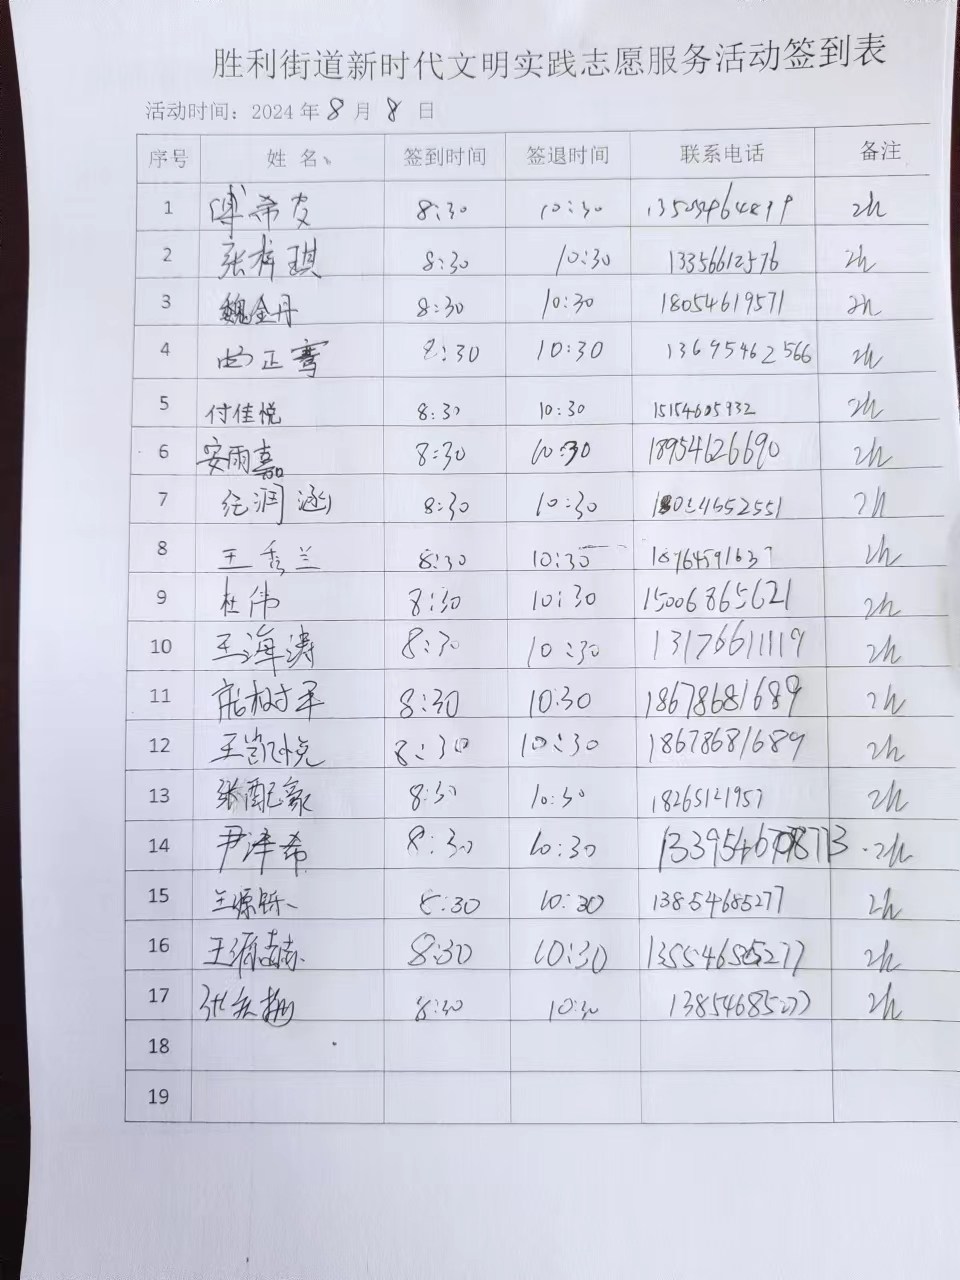 胜利街道新时代文明实践志愿服务活动签到表
活动时间：2024 年 8 月 8 日
序号 姓 名 签到时间 签退时间 联系电话 备注
1 傅希友 8:30 10:30 2h
2 张梓琪 8:30 10:30 13356612576 2h
3 魏金丹 8:30 10:30 18054619571 2h
4 曲正骞 8:30 10:30 13695462566 2h
5 付佳悦 8:30 10:30 15154605932 2h
6 安雨嘉 8:30 10:30 18954626690 2h
7 纪润涵 8:30 10:30 2h
8 王秀兰 8:30 10:30 18764591637 2h
9 杜伟 8:30 10:30 15006865621 2h
10 王海涛 8:30 10:30 13176611119 2h
11 8:30 10:30 18678681689 2h
12 王凯悦 8:30 10:30 18678681689 2h
13 张配豪 8:30 10:30 18265121957 2h
14 尹泽希 8:30 10:30 2h
15 王源铄 8:30 10:30 13854685277 2h
16 8:30 10:30 2h
17 8:30 10:30 2h
18
19